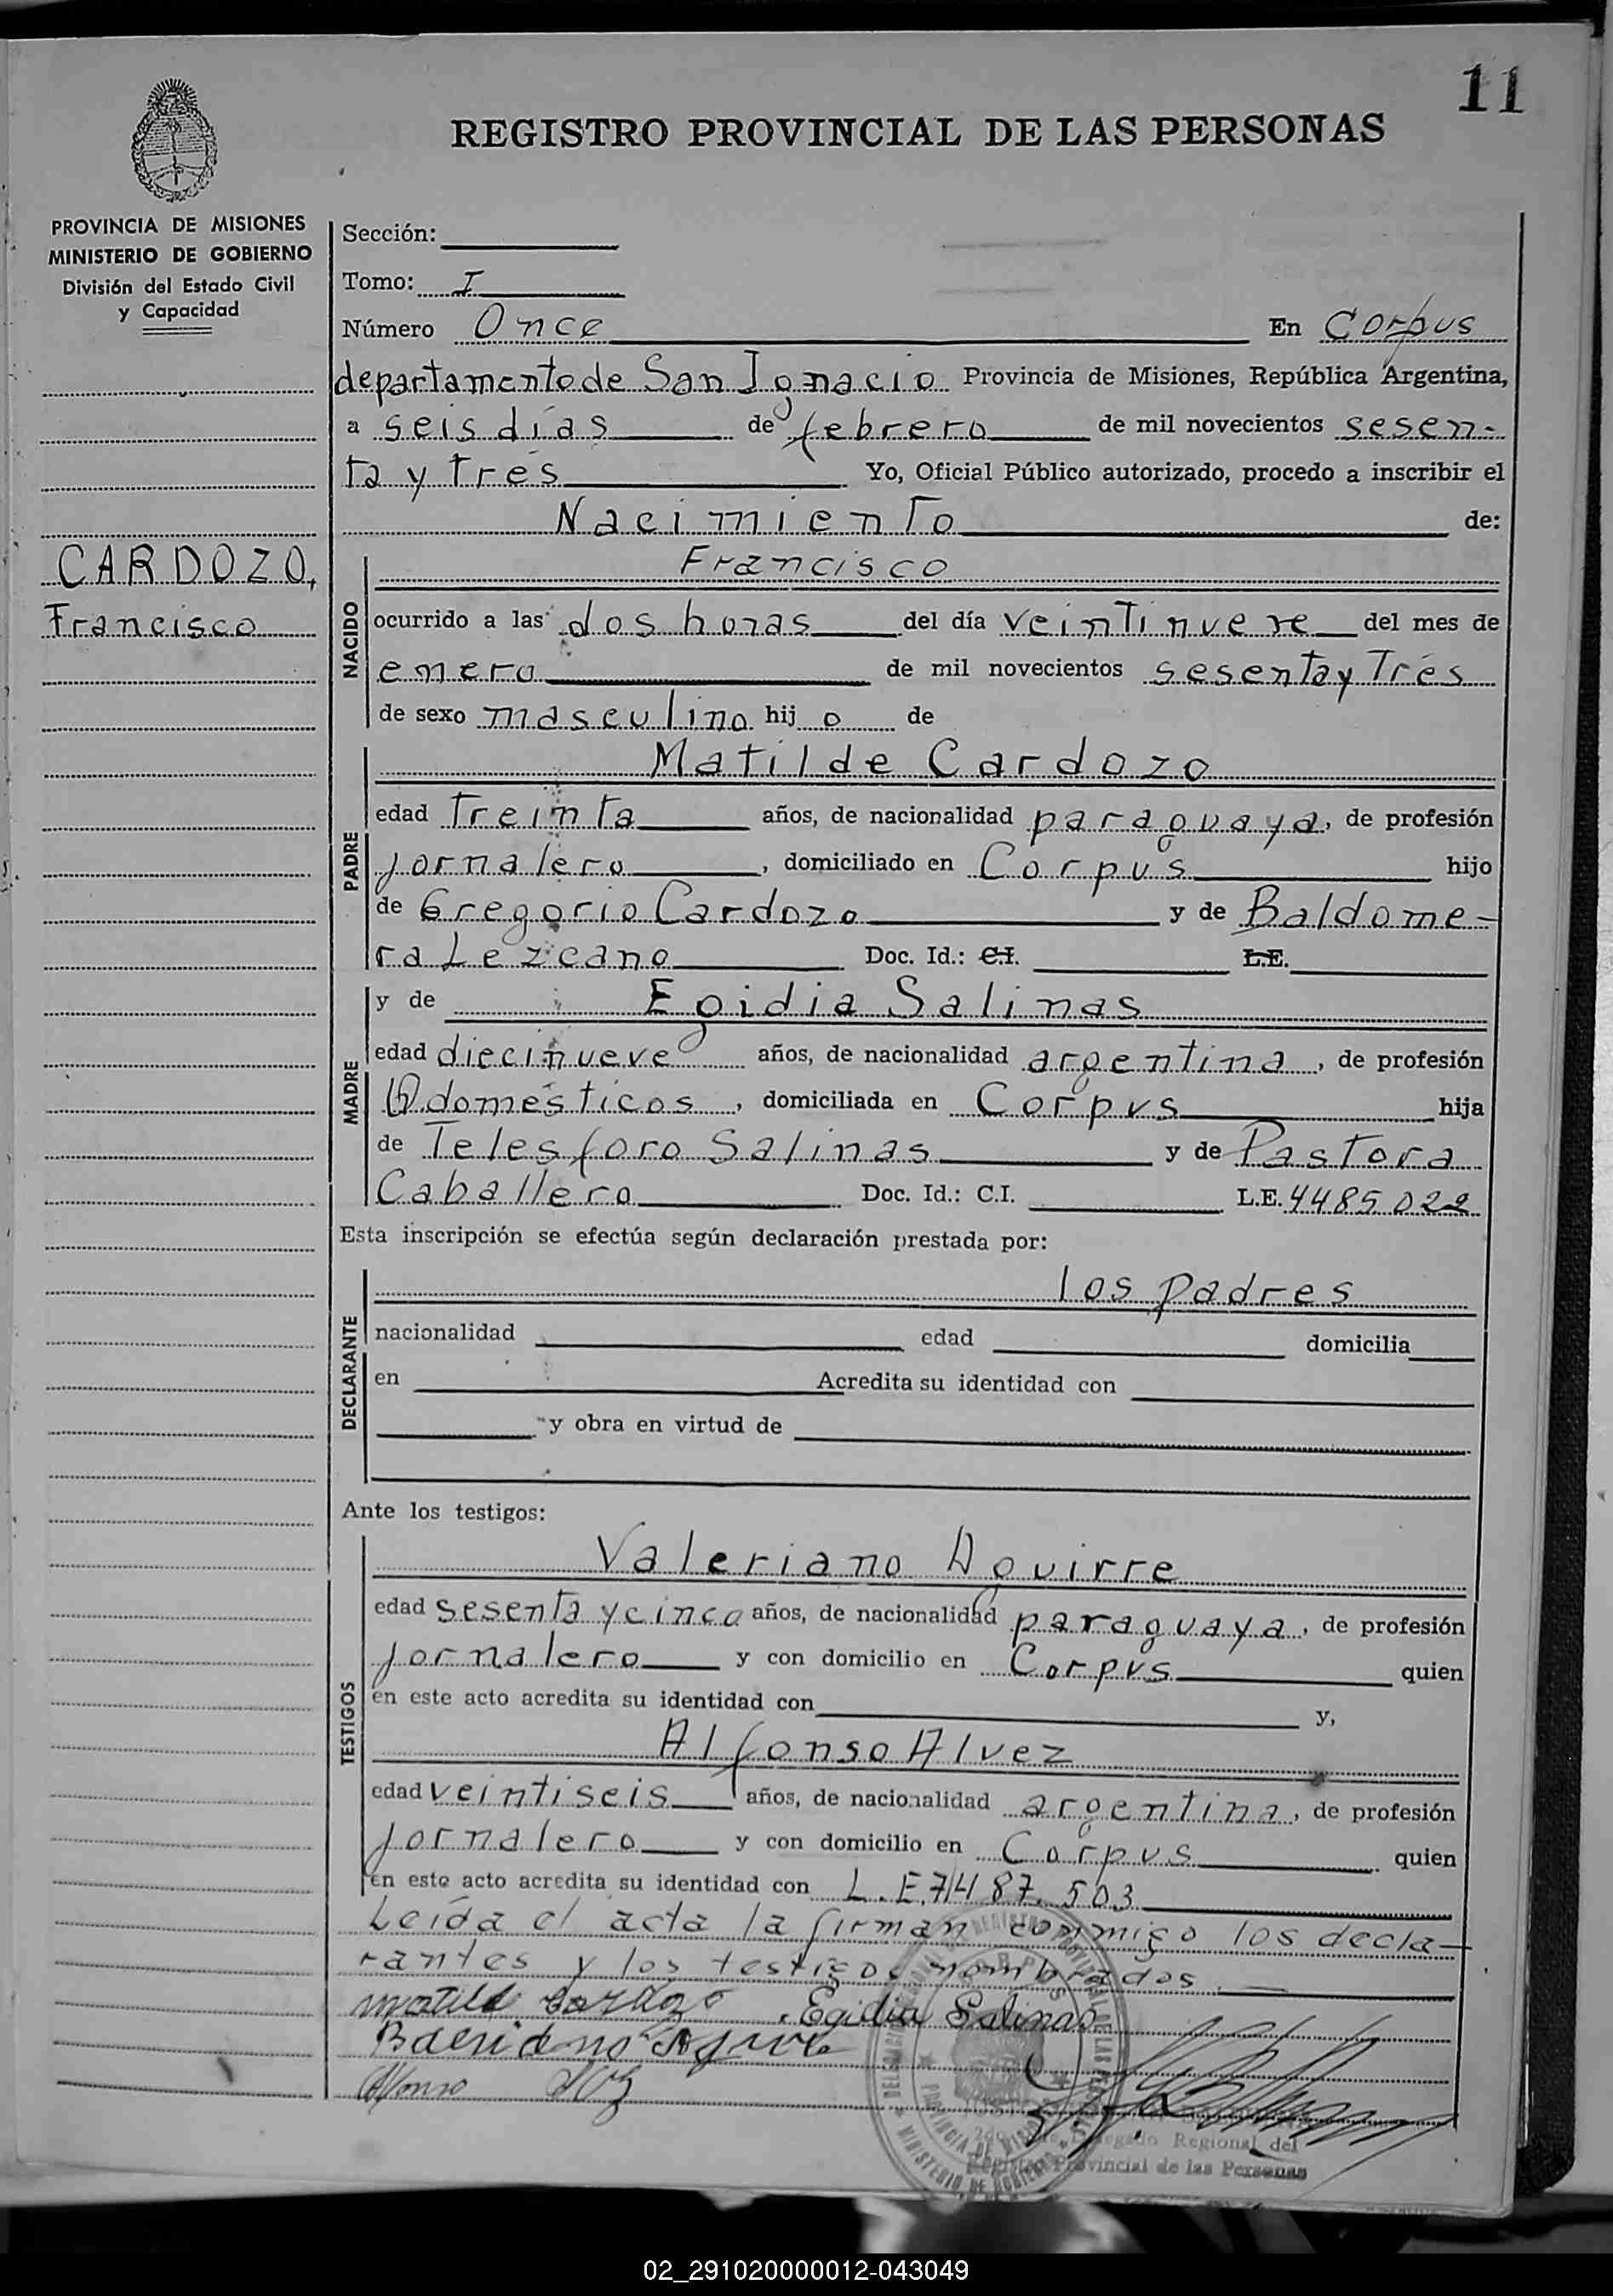 11
REGISTRO PROVINCIAL DE LAS PERSONAS
PROVINCIA DE MISIONES
MINISTERIO DE GOBIERNO
División del Estado Civil
y Capacidad
CARDOZO,
Francisco
Sección:
Tomo: I
Número Once En Corpus
departamento de San Ignacio Provincia de Misiones, República Argentina,
a seis días de febrero de mil novecientos sesen-
ta y tres Yo, Oficial Público autorizado, procedo a inscribir el
Nacimiento de:
NACIDO
Francisco
ocurrido a las dos horas del día veintinueve del mes de
enero de mil novecientos sesenta y Tres
de sexo masculino hij o de
PADRE
Matilde Cardozo
edad treinta años, de nacionalidad paraguaya, de profesión
jornalero, domiciliado en Corpus hijo
de Gregorio Cardozo y de Baldome-
ra Lezcano Doc. Id.: C.I. L.E.
MADRE
y de Egidia Salinas
edad diecinueve años, de nacionalidad argentina, de profesión
Q. domésticos, domiciliada en Corpus hija
de Telesforo Salinas y de Pastora
Caballero Doc. Id.: C.I. L.E. 4485022
Esta inscripción se efectúa según declaración prestada por:
DECLARANTE
los padres
nacionalidad edad domicilia
en Acredita su identidad con
y obra en virtud de
Ante los testigos:
TESTIGOS
Valeriano Aguirre
edad sesenta y cinco años, de nacionalidad paraguaya, de profesión
jornalero y con domicilio en Corpus quien
en este acto acredita su identidad con y,
Alfonso Alvez
edad veintiseis años, de nacionalidad argentina, de profesión
jornalero y con domicilio en Corpus quien
en este acto acredita su identidad con L.E. 7487.503
Leída el acta la firman conmigo los decla-
rantes y los testigos nombrados.
Matilde Cardozo Egidia Salinas
Alfonso
Delegado Regional del
Registro Provincial de las Personas
02_291020000012-043049